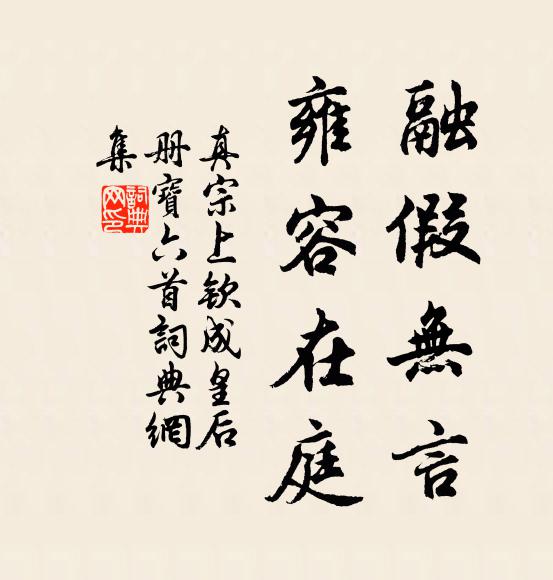 融假無言
雍容在庭
真宗上欽成皇后
册寶六首詞典網
集
詞典
网印